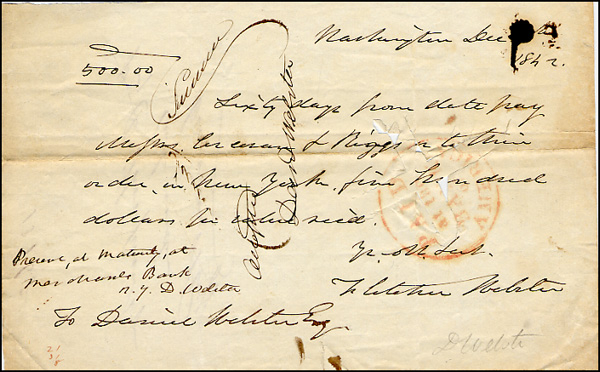 Washington Dec
1842.
500.00
Sixty days from date pay
Messrs. Corcoran & Riggs or to their
order, in New York, five Hundred
dollars for value recd.
Yr. Obt. Sert.
Fletcher Webster
Present, at maturity, at
Merchants Bank
N.Y. D. Webster
To Daniel Webster Esq.
accepted
Dan Webster
D Webster